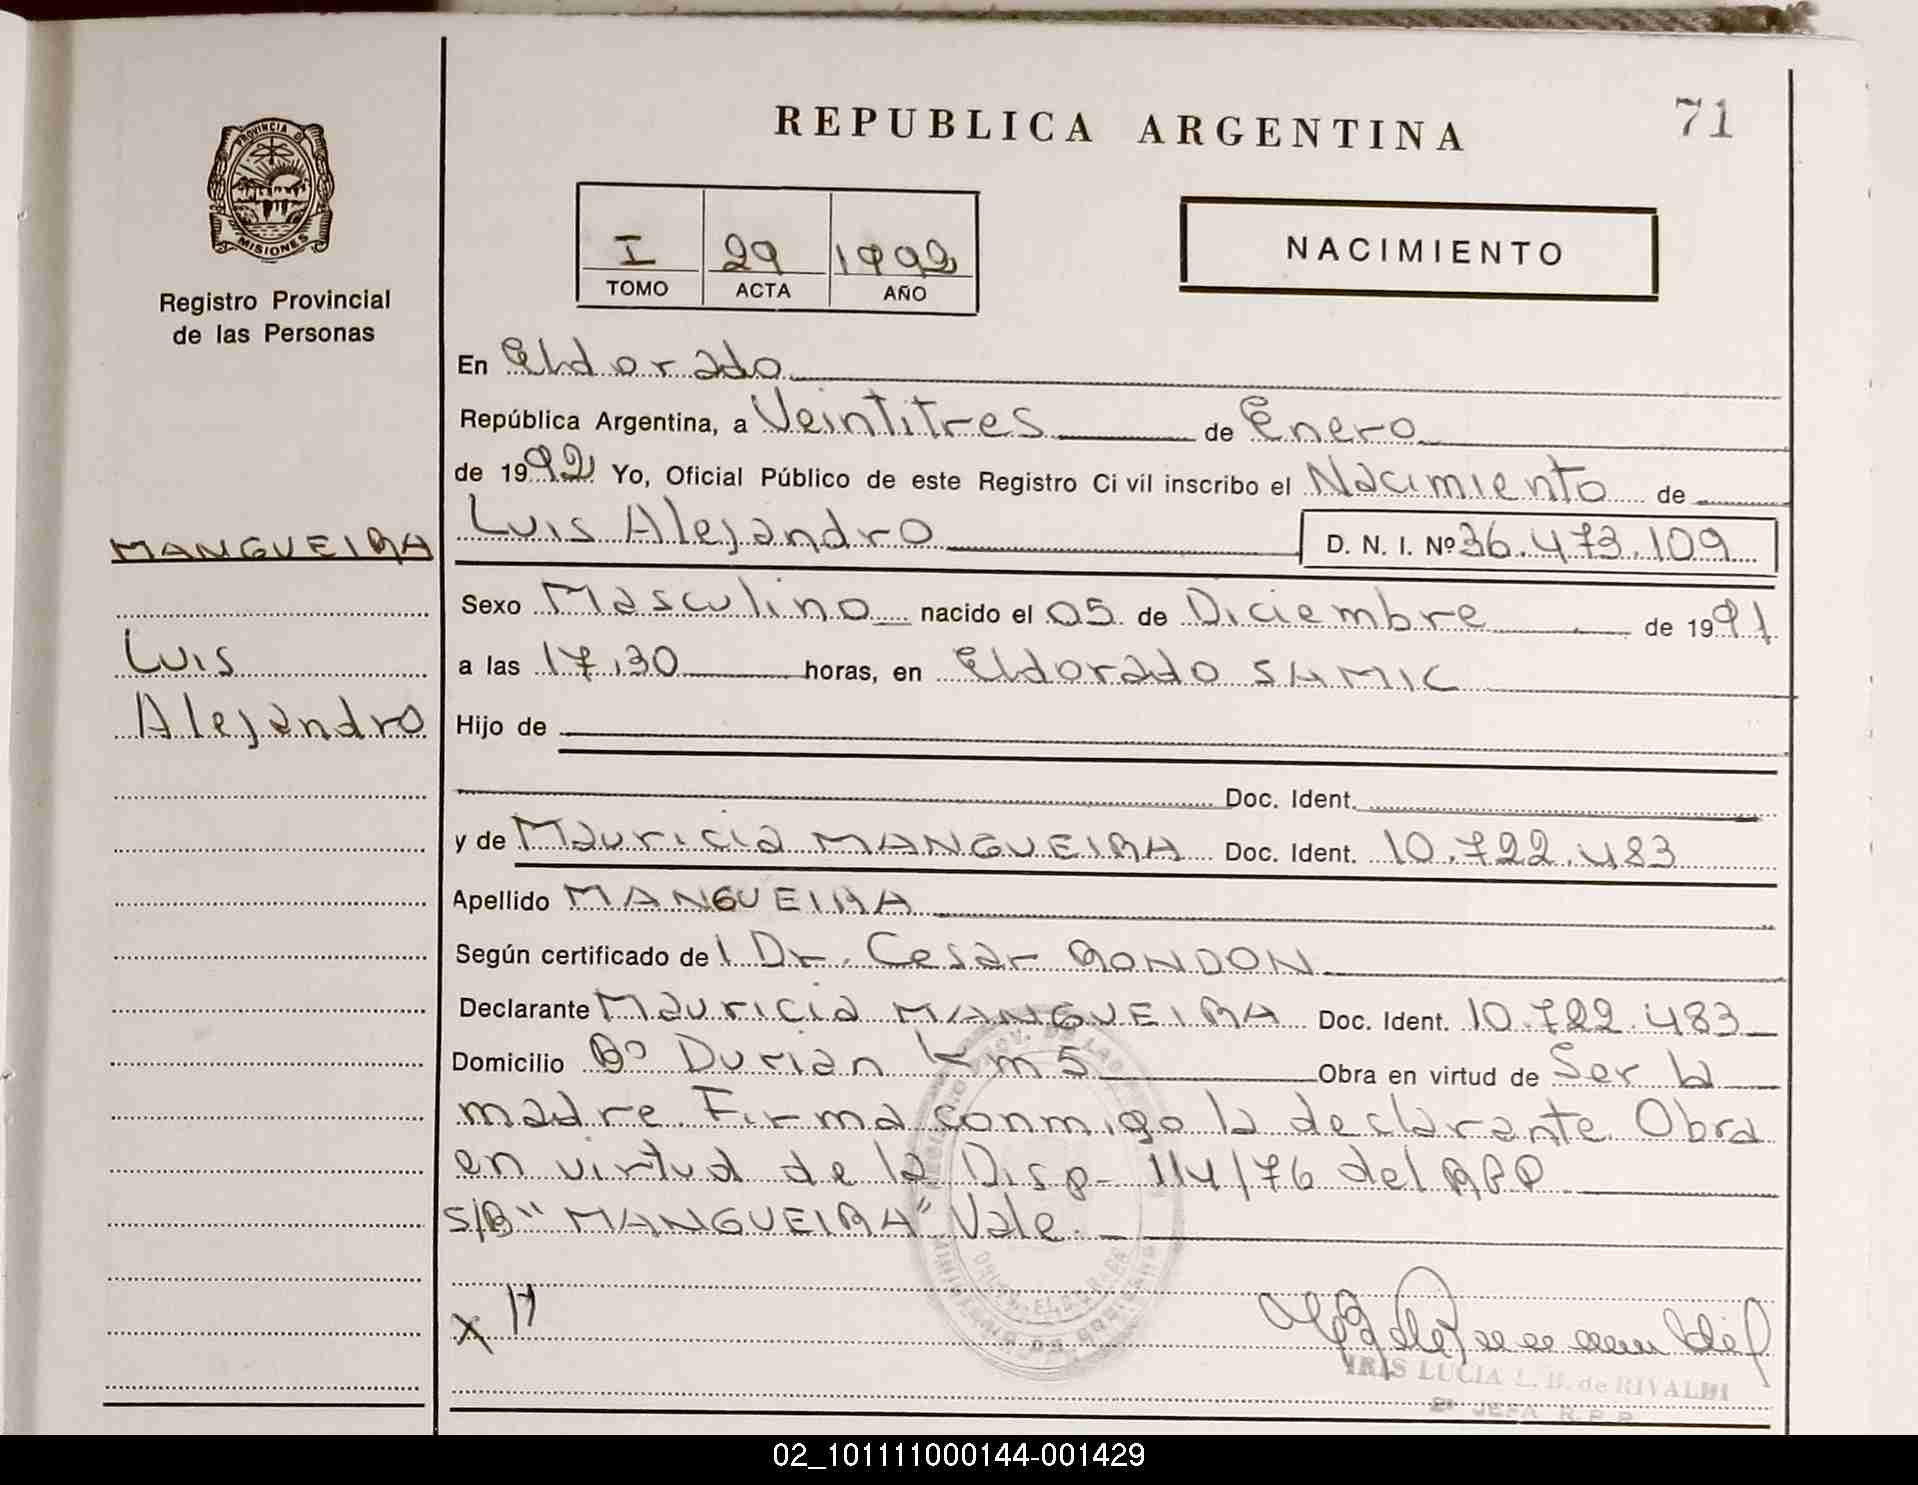 REPUBLICA ARGENTINA
71
PROVINCIA D
MISIONES
Registro Provincial
de las Personas
I 29 1992
TOMO ACTA AÑO
NACIMIENTO
En Eldorado
República Argentina, a Veintitres de Enero
de 1992 Yo, Oficial Público de este Registro Civil inscribo el Nacimiento de
MANGUEIRA
Luis Alejandro D. N. I. Nº 36.473.109
Sexo Masculino nacido el 05 de Diciembre de 1991
Luis
a las 17,30 horas, en Eldorado SAMIC
Alejandro
Hijo de
Doc. Ident.
y de Mauricia MANGUEIRA Doc. Ident. 10.722.483
Apellido MANGUEIRA
Según certificado de l Dr. Cesar RONDON
Declarante Mauricia MANGUEIRA Doc. Ident. 10.722.483
Domicilio Bº Durian km 5 Obra en virtud de Ser la
madre. Firma conmigo la declarante Obra
en virtud de la Disp- 114/76 del RPP
S/B "MANGUEIRA" Vale.
x
IRIS LUCIA L. B. de RIVALDI
JEFA R.P.P.
02_101111000144-001429